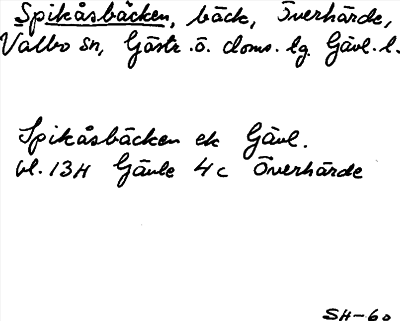 Spikåsbäcken, bäck, Överhärde,
Valbo sn, Gästr. ö. doms. lg Gävl. l.
Spikåsbäcken ek Gävl.
bl. 13H Gävle 4c Överhärde
SH-60